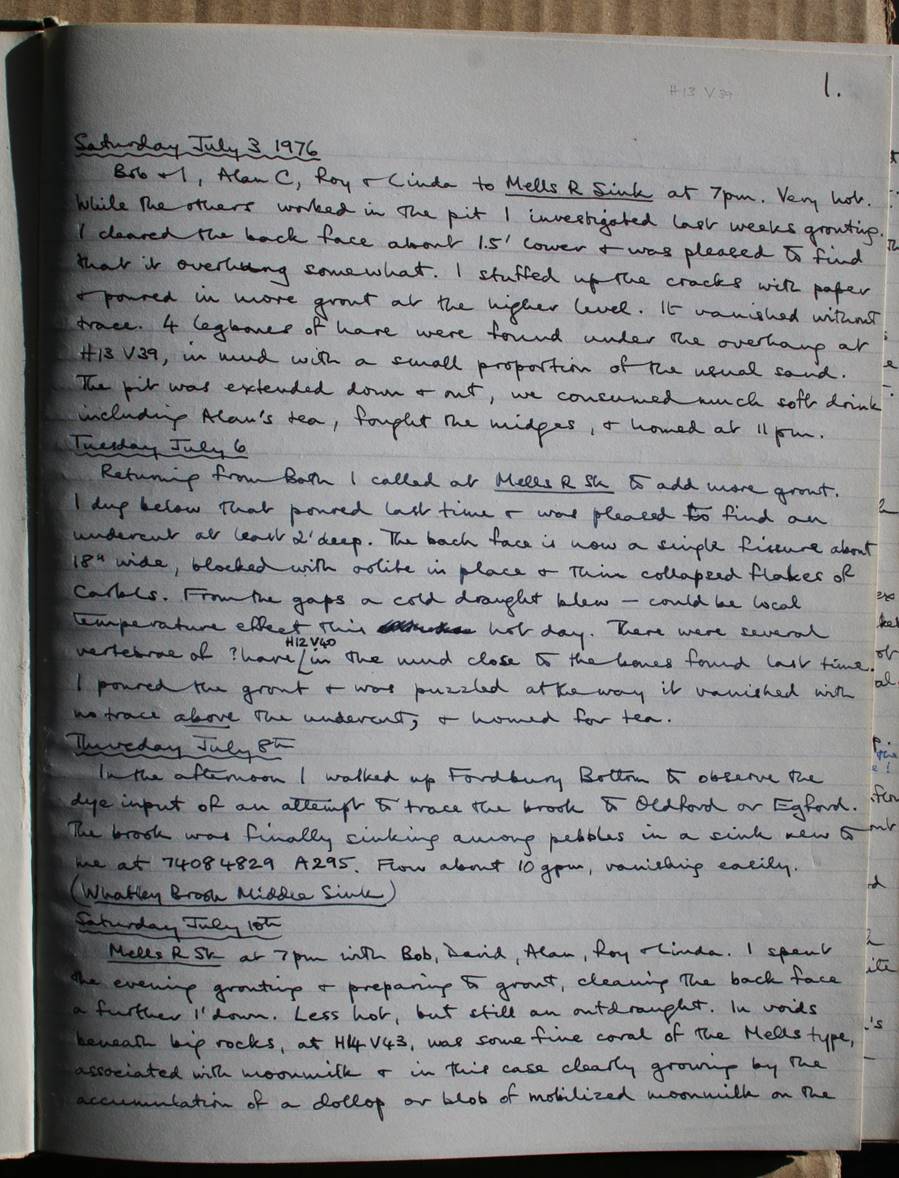 H13 V39
1.
Saturday July 3 1976
Bob & I, Alan C, Roy & Linda to Mells R Sink at 7pm. Very hot.
While the others worked in the pit I investigated last weeks grouting.
I cleared the back face about 1.5' lower & was pleased to find
that it overhung somewhat. I stuffed up the cracks with paper
& poured in more grout at the higher level. It vanished without
trace. 4 legbones of hare were found under the overhang at
H13 V39, in mud with a small proportion of the usual sand.
The pit was extended down & out, we consumed much soft drink
including Alan's tea, fought the midges, & homed at 11pm.
Tuesday July 6
Returning from Bath I called at Mells R Sk to add more grout.
I dug below that poured last time & was pleased to find an
undercut at least 2' deep. The back face is now a single fissure about
18" wide, blocked with oolite in place & thin collapsed flakes of
Carbls. From the gaps a cold draught blew – could be local
temperature effect this hot day. There were several
H12 V40
vertebrae of ?hare in the mud close to the bones found last time.
I poured the grout & was puzzled at the way it vanished with
no trace above the undercut, & homed for tea.
Thursday July 8th
In the afternoon I walked up Fordbury Bottom to observe the
dye input of an attempt to trace the brook to Oldford or Egford.
The brook was finally sinking among pebbles in a sink new to
me at 74084829 A295. Flow about 10 gpm, vanishing easily.
(Whatley Brook Middle Sink)
Saturday July 10th
Mells R Sk at 7pm with Bob, David, Alan, Roy & Linda. I spent
the evening grouting & preparing to grout, cleaning the back face
a further 1' down. Less hot, but still an outdraught. In voids
beneath big rocks, at H14 V43, was some fine coral of the Mells type,
associated with moonmilk & in this case clearly growing by the
accumulation of a dollop or blob of mobilized moonmilk on the